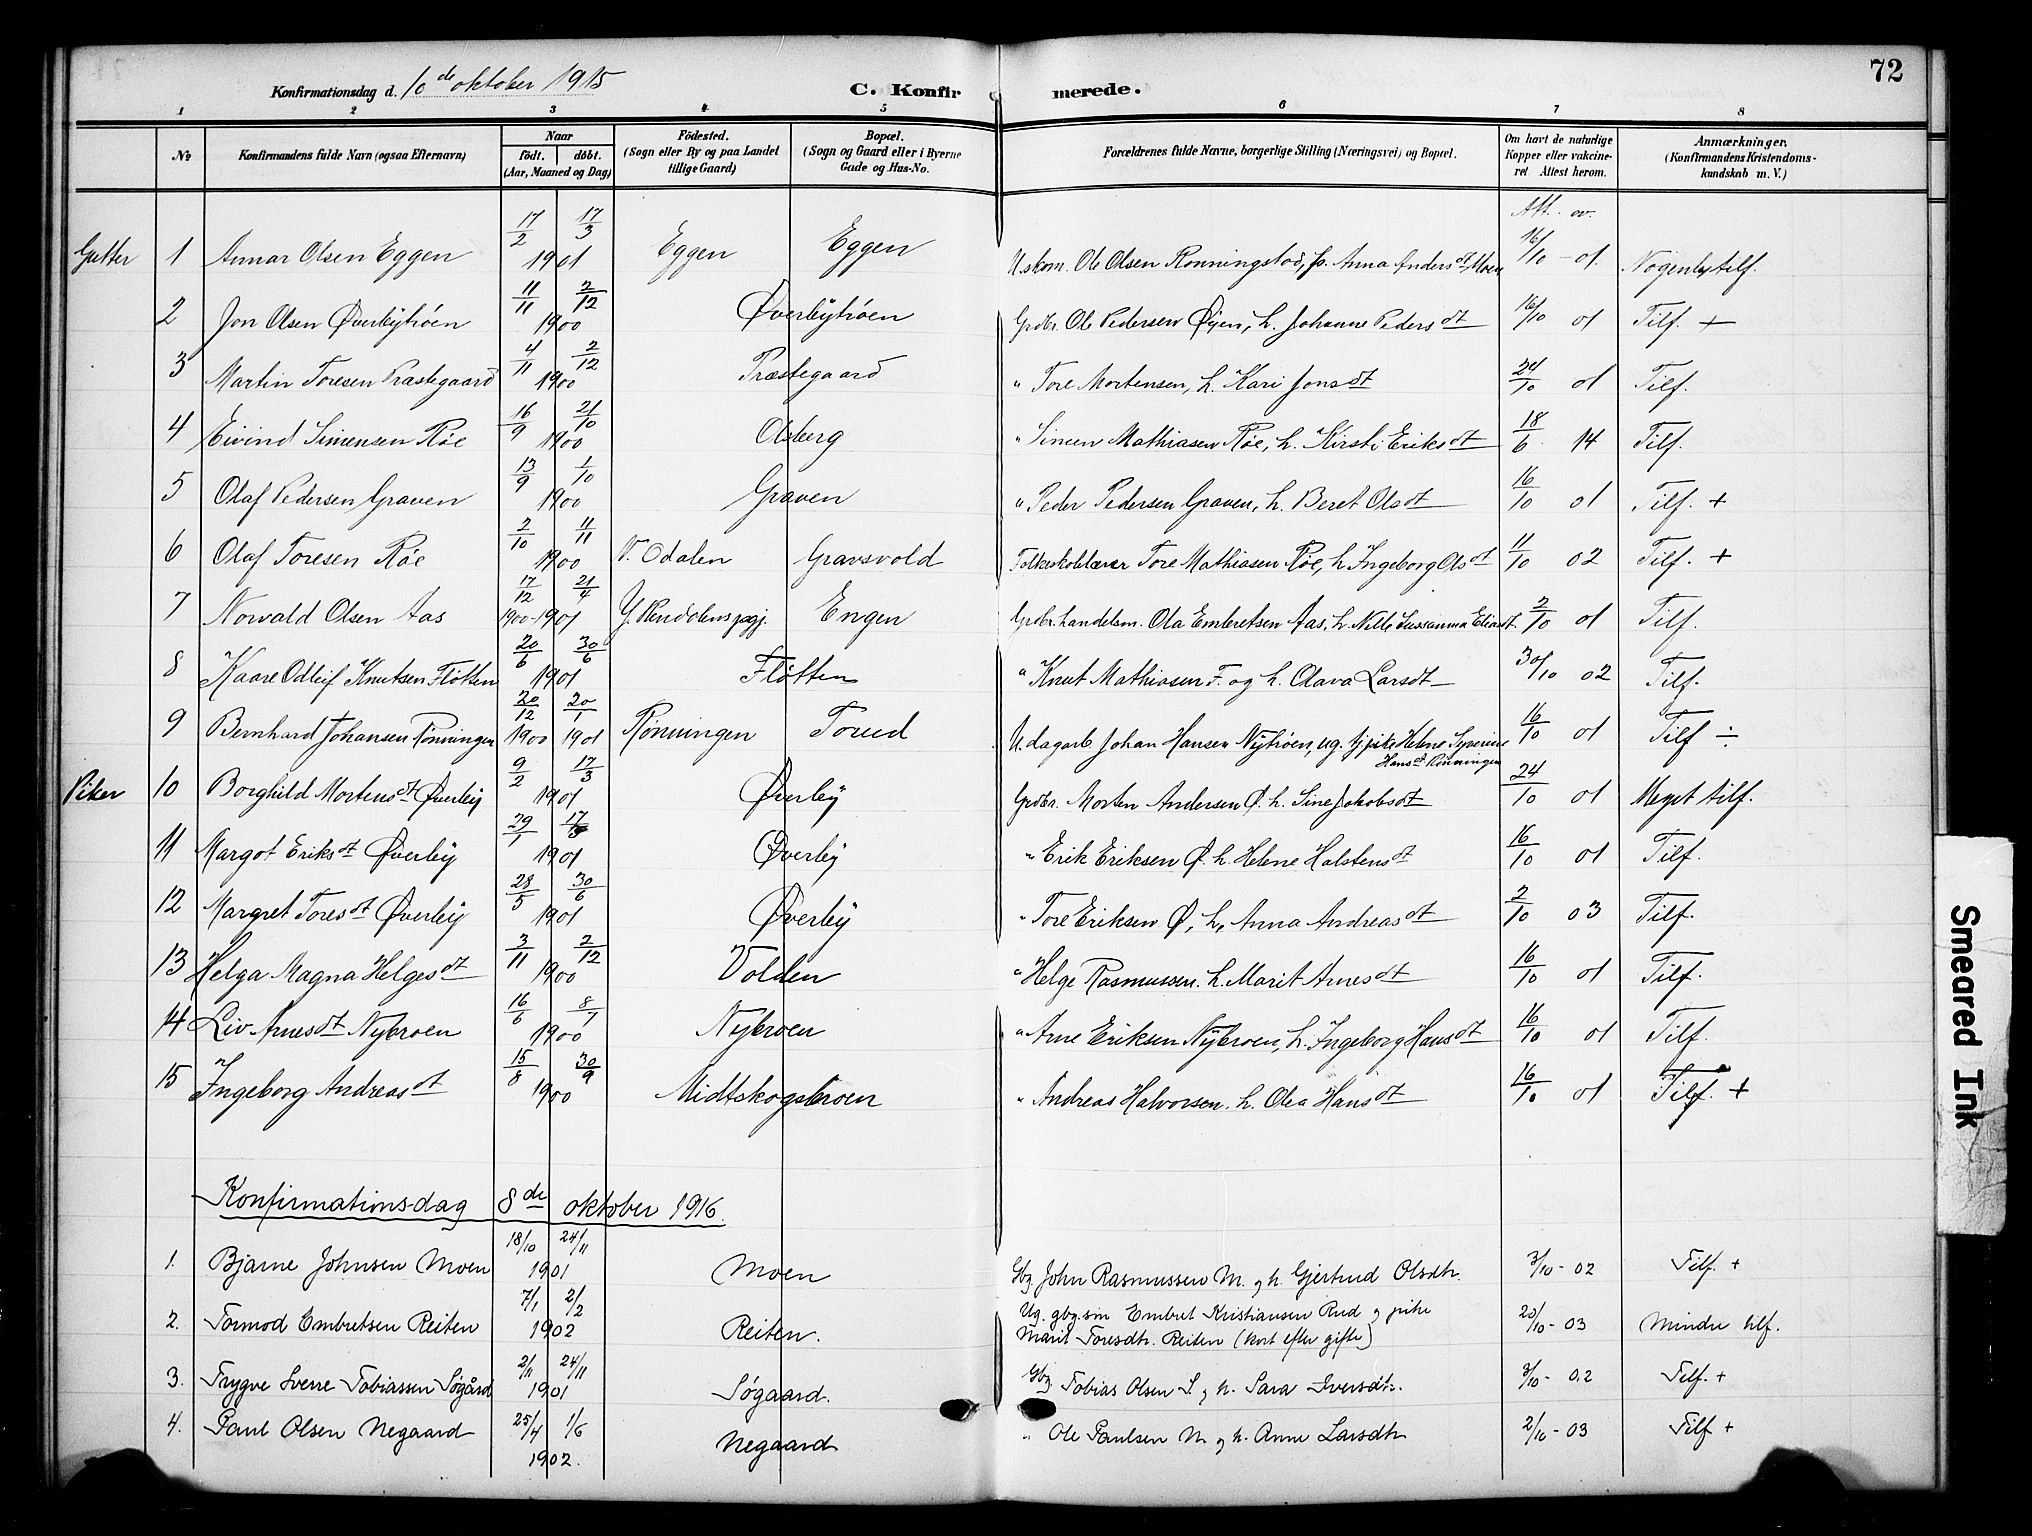 72
Konfirmationsdag d. 10de oktober 1915 C. Konfirmerede.
1 2 3 4 5 6 7 8
No
Konfirmandens fulde Navn (ogsaa Efternavn)
Naar
födt. döbt.
(Aar, Maaned og Dag)
Födested.
(Sogn eller By og paa Landet
tillige Gaard)
Bopæl.
(Sogn og Gaard eller i Byerne
Gade og Hus-No.
Forældrenes fulde Navne, borgerlige Stilling (Næringsvei) og Bopæl.
Om havt de naturlige
Kopper eller vakcine-
ret Attest herom.
Anmærkninger.
(Konfirmandens Kristendoms-
kundskab m. V.)
Att. ov.
Gutter 1 Annar Olsen Eggen 17/2 17/3 1901 Eggen Eggen U.skom. Ole Olsen Ronningstad, p. Anna Andersdt. Moen 16/10 - 01 Nogenl. tilf.
2 Jon Olsen Øverbytrøen 11/11 2/12 1900 Øverbytrøen Grdbr. Ole Pedersen Øyen, h. Johanne Pedersdt 16/10 01 Tilf. +
3 Martin Toresen Præstegaard 4/11 2/12 1900 Præstegaard " Tore Mortensen, h. Kari Jonsdt 24/10 01 Tilf.
4 Eivind Simensen Røe 16/9 21/10 1900 Olsberg " Simen Mathiasen Røe, h. Kirsti Eriksdt 18/6 14 Tilf.
5 Olaf Pedersen Graven 13/9 1/10 1900 Graven " Peder Pedersen Graven, h. Beret Olsdt 16/10 01 Tilf. +
6 Olaf Toresen Røe 2/10 11/11 1900 V. Odalen Gravsvold Folkeskolelærer Tore Mathiasen Røe, h. Ingeborg Olsdt 11/10 02 Tilf. +
7 Norvald Olsen Aas 17/12 21/4 1900-1901 Y. Rendalens pgj. Engen Grdbr. handelsm. Ola Embretsen Aas, h. Nille Sussanna Eliasdt 2/10 01 Tilf.
8 Kaare Odleif Knutsen Fløtten 20/6 30/6 1901 Fløtten " Knut Mathiasen F. og h. Olava Larsdt 30/10 02 Tilf.
9 Bernhard Johansen Rønningen 20/12 1900 20/1 1901 Rønningen Torud U. dagarb. Johan Hansen Nytrøen, ug. tj.pike Helene Syverine
Hansdt Rønningen 16/10 01 Tilf ÷
Piker 10 Borghild Mortensdt Øverby 9/2 17/3 1901 Øverby Grdbr. Morten Andersen Ø. h. Sine Jakobsdt 24/10 01 Meget tilf.
11 Margot Eriksdt Øverby 29/1 17/3 1901 Øverby " Erik Eriksen Ø. h. Helene Halstensdt 16/10 01 Tilf.
12 Margret Toresdt Øverby 28/5 30/6 1901 Øverby " Tore Eriksen Ø, h. Anna Andreasdt 2/10 03 Tilf.
13 Helga Magna Helgesdt 3/11 2/12 1900 Volden " Helge Rasmussen. h. Marit Arnesdt 16/10 01 Tilf.
14 Liv Arnesdt Nybroen 16/6 8/7 1900 Nybroen " Arne Eriksen Nybroen, h. Ingeborg Hansdt 16/10 01 Tilf.
15 Ingeborg Andreasdt 15/8 30/9 1900 Midtskogsbroen " Andreas Halvorsen. h. Olea Hansdt 16/10 01 Tilf. +
Konfirmationsdag 8de oktober 1916.
1. Bjarne Johnsen Moen 18/10 24/11 1901 Moen Gbg John Rasmussen M. og h. Gjertrud Olsdtr. 3/10 - 02 Tilf. +
2. Tormod Embretsen Reiten 7/1 2/2 1902 Reiten. Ug. gbg.søn Embret Kristiansen Rud og pike
Marit Toresdtr. Reiten (kort efter gifte) 20/10 - 03 Mindre tilf.
3. Trygve Sverre Tobiassen Søgård 2/11 24/11 1901 Søgaard. Gbg Tobias Olsen S. og h. Sara Iversdtr. 3/10 - 02 Tilf. +
4. Paul Olsen Negaard 25/4 1/6 1902. Negaard " Ole Paulsen N og h. Anne Larsdtr 2/10 - 03 Tilf +
Smeared Ink